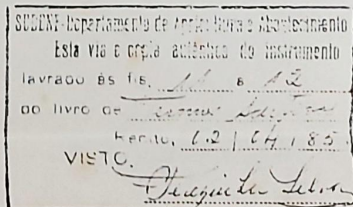 SUDENE-Departamento de Agricultura e Abastecimento
Esta via é cópia autêntica do instrumento
lavrado às fls. 11 a 12
do livro de
Recife, 02 / 04 / 85
VISTO.